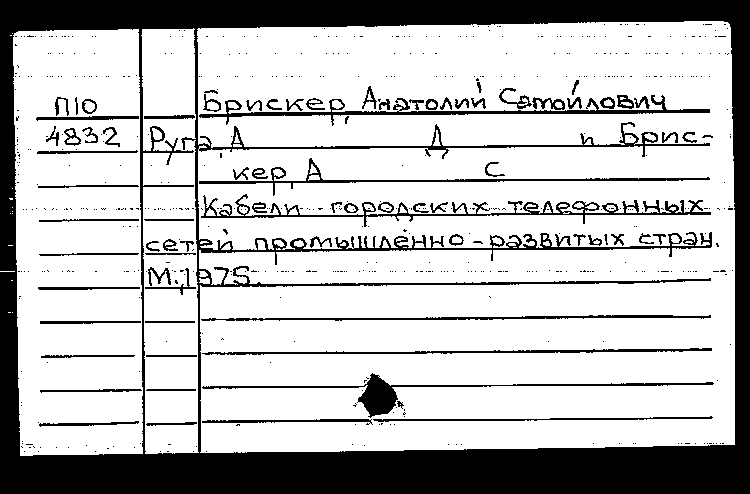 П10 Брискер, Анатолий Самойлович
4832 Руга, А Д и Брис-
кер, А С
Кабели городских телефонных
сетей промышленно-развитых стран.
М., 1975.